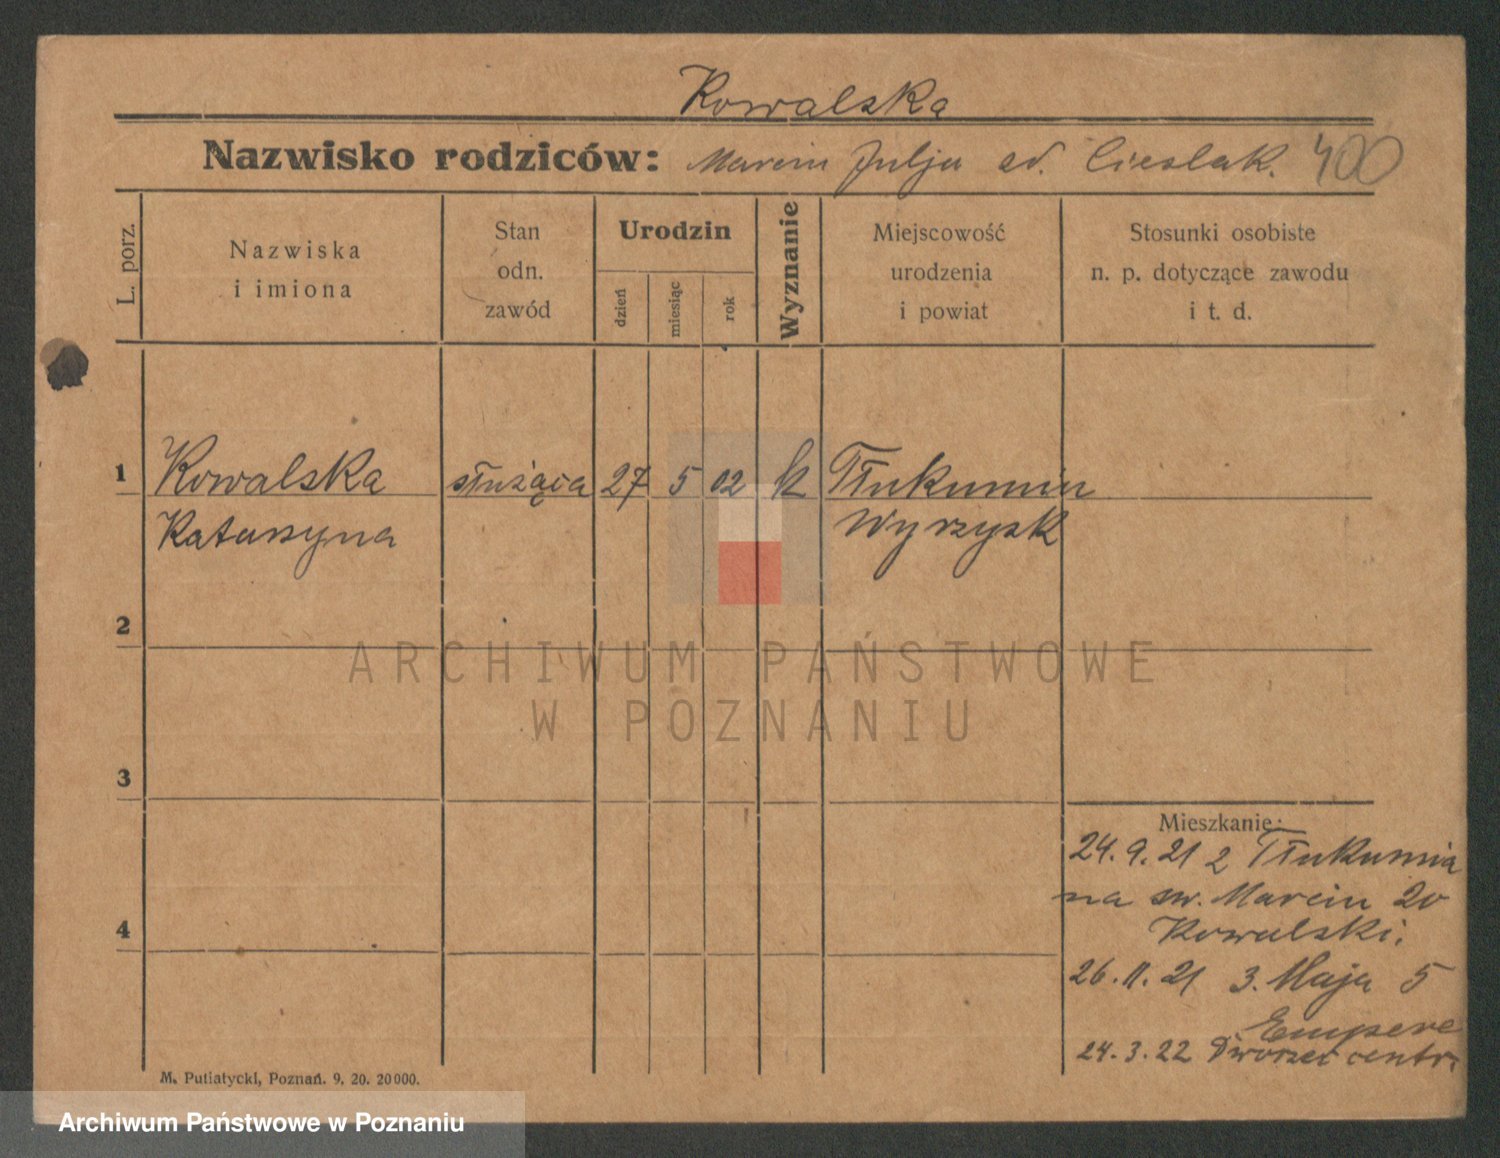 Kowalska
Nazwisko rodziców: Marcin Julja od. Cieslak. 400
L. porz.
Nazwiska
i imiona
Stan
odn.
zawód
Urodzin
dzień
miesiąc
rok
Wyznanie
Miejscowość
urodzenia
i powiat
Stosunki osobiste
n. p. dotyczące zawodu
i t. d.
1 Kowalska służąca 27 5 02 k Tłukumin
Katarzyna Wyrzysk
2
ARCHIWUM PAŃSTWOWE
W POZNANIU
3
Mieszkanie:
24.9.21 z Tłukumia
na św. Marcin 20
Kowalski.
4
26.11.21 3. Maja 5
Empere
24.3.22 Dworzec centr.
M. Putiatycki, Poznań. 9. 20. 20000.
Archiwum Państwowe w Poznaniu